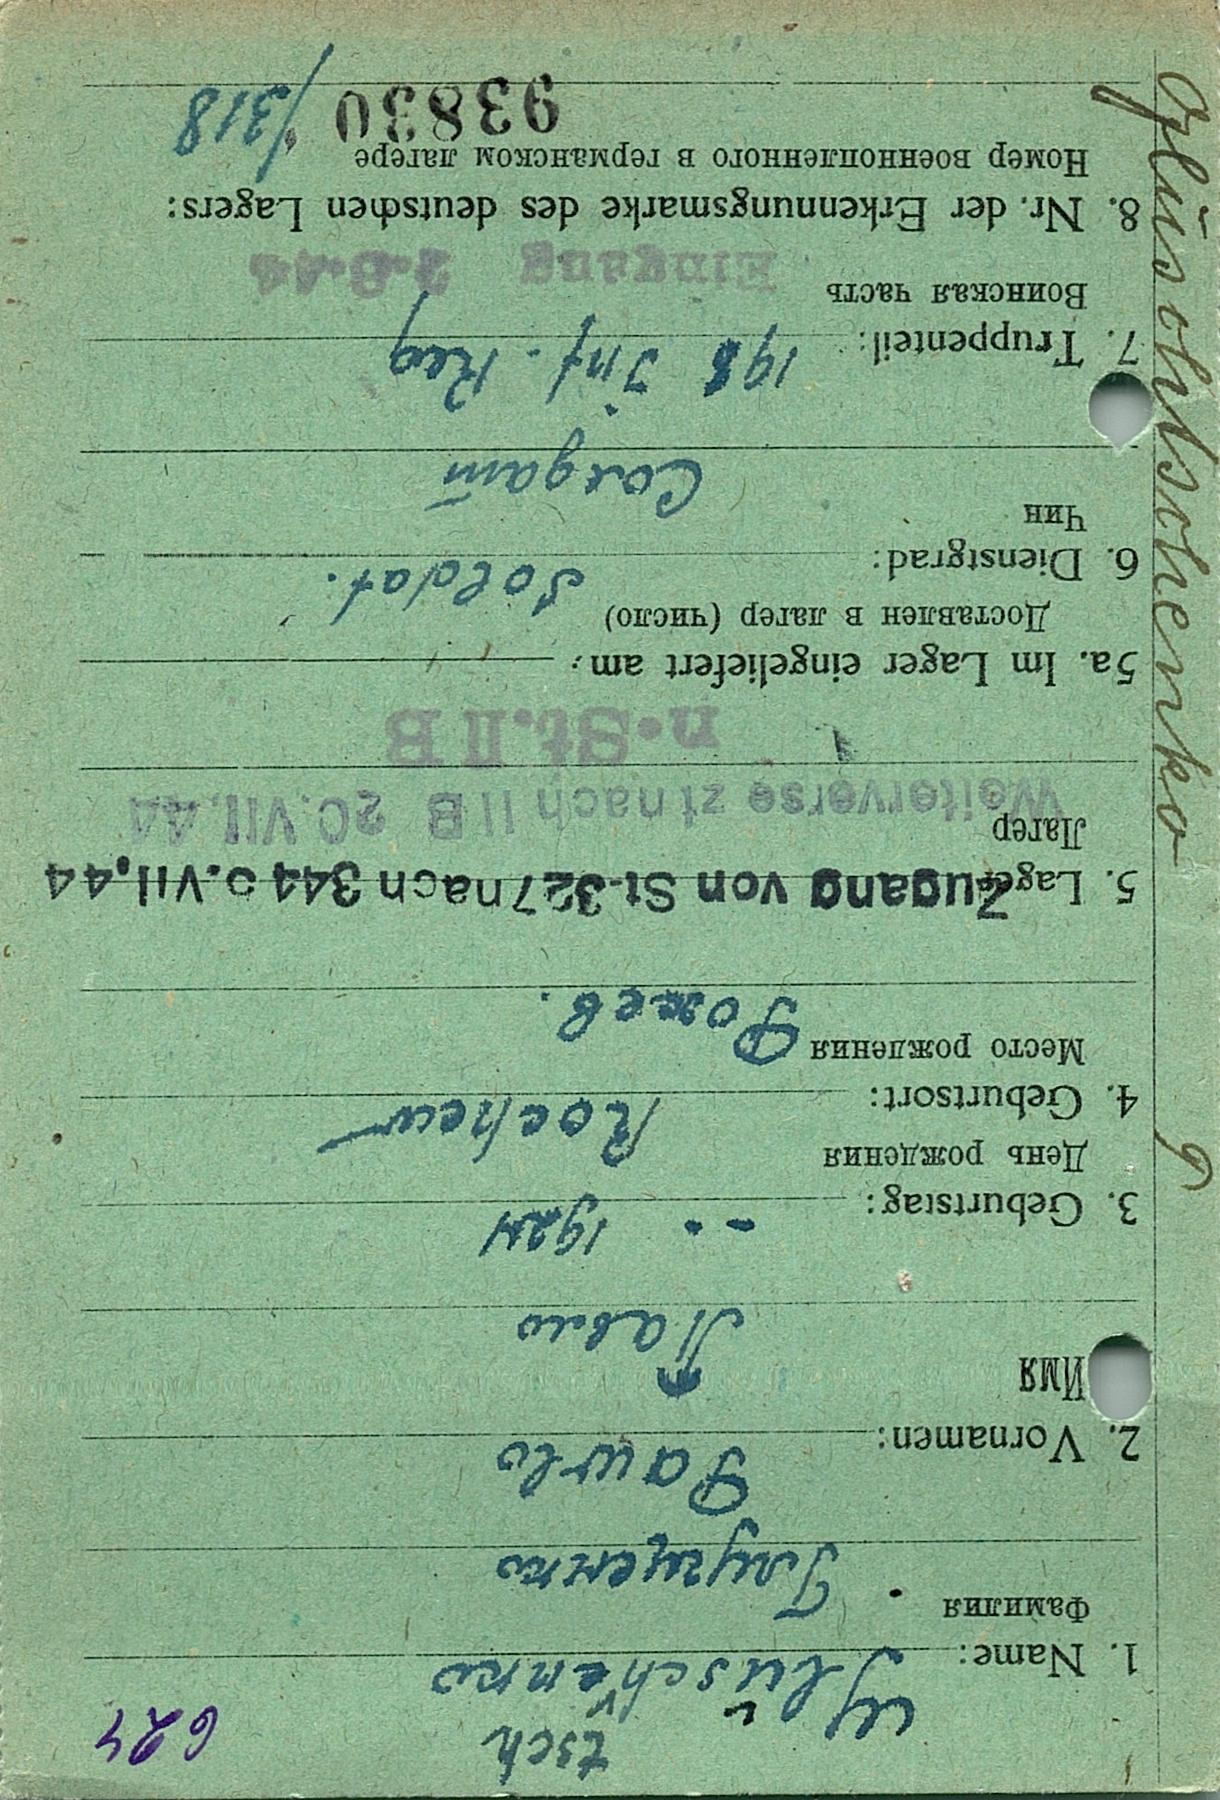 624
tsch
Gluschenko
1. Name:
Фамилия
Глущенко
2. Vornamen: Pawlo
Имя
Павло
3. Geburtstag: -- .. 1924
День рождения
4. Geburtsort: Rochew
Место рождения Рохев.
5. Lager
Zugang von St-327 nach 344 5.VII.44
Лагер
Weiterverse zt nach II B 20.VII.44
n.St.II B
5a. Im Lager eingeliefert am:
Доставлен в лагер (число)
6. Dienstgrad: Soldat.
Чин
Солдат
7. Truppenteil: 198 Inf. Reg
Воинская часть
Eingang 2-8-44
8. Nr. der Erkennungsmarke des deutschen Lagers:
Номер военнопленного в германском лагере
93830 /318
Gluschtschenko